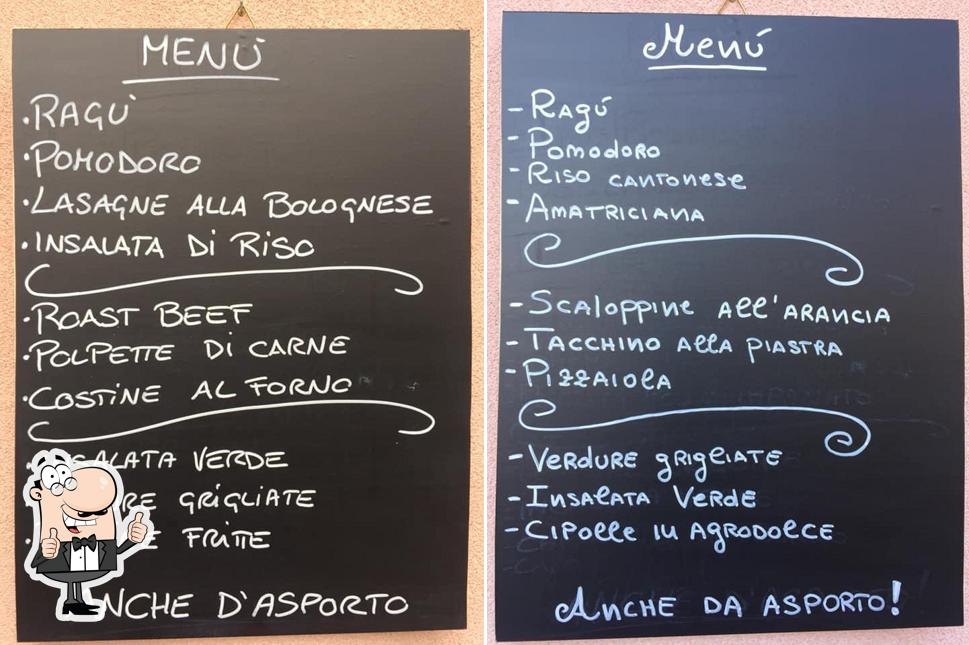 MENÙ
• RAGÙ
• POMODORO
• LASAGNE ALLA BOLOGNESE
• INSALATA Di RiSO
• ROAST BEEF
• POLPETTE Di CARNE
• COSTiNE AL FORNO
VERDE
GRiGLiATE
FRITTE
D'ASPORTO
Menú
- Ragú
- Pomodoro
- Riso cantonese
- Amatriciana
- Scaloppine all'arancia
- Tacchino alla piastra
- Pizzaiola
- Verdure grigliate
- Insalata Verde
- Cipolle in Agrodolce
Anche da asporto!